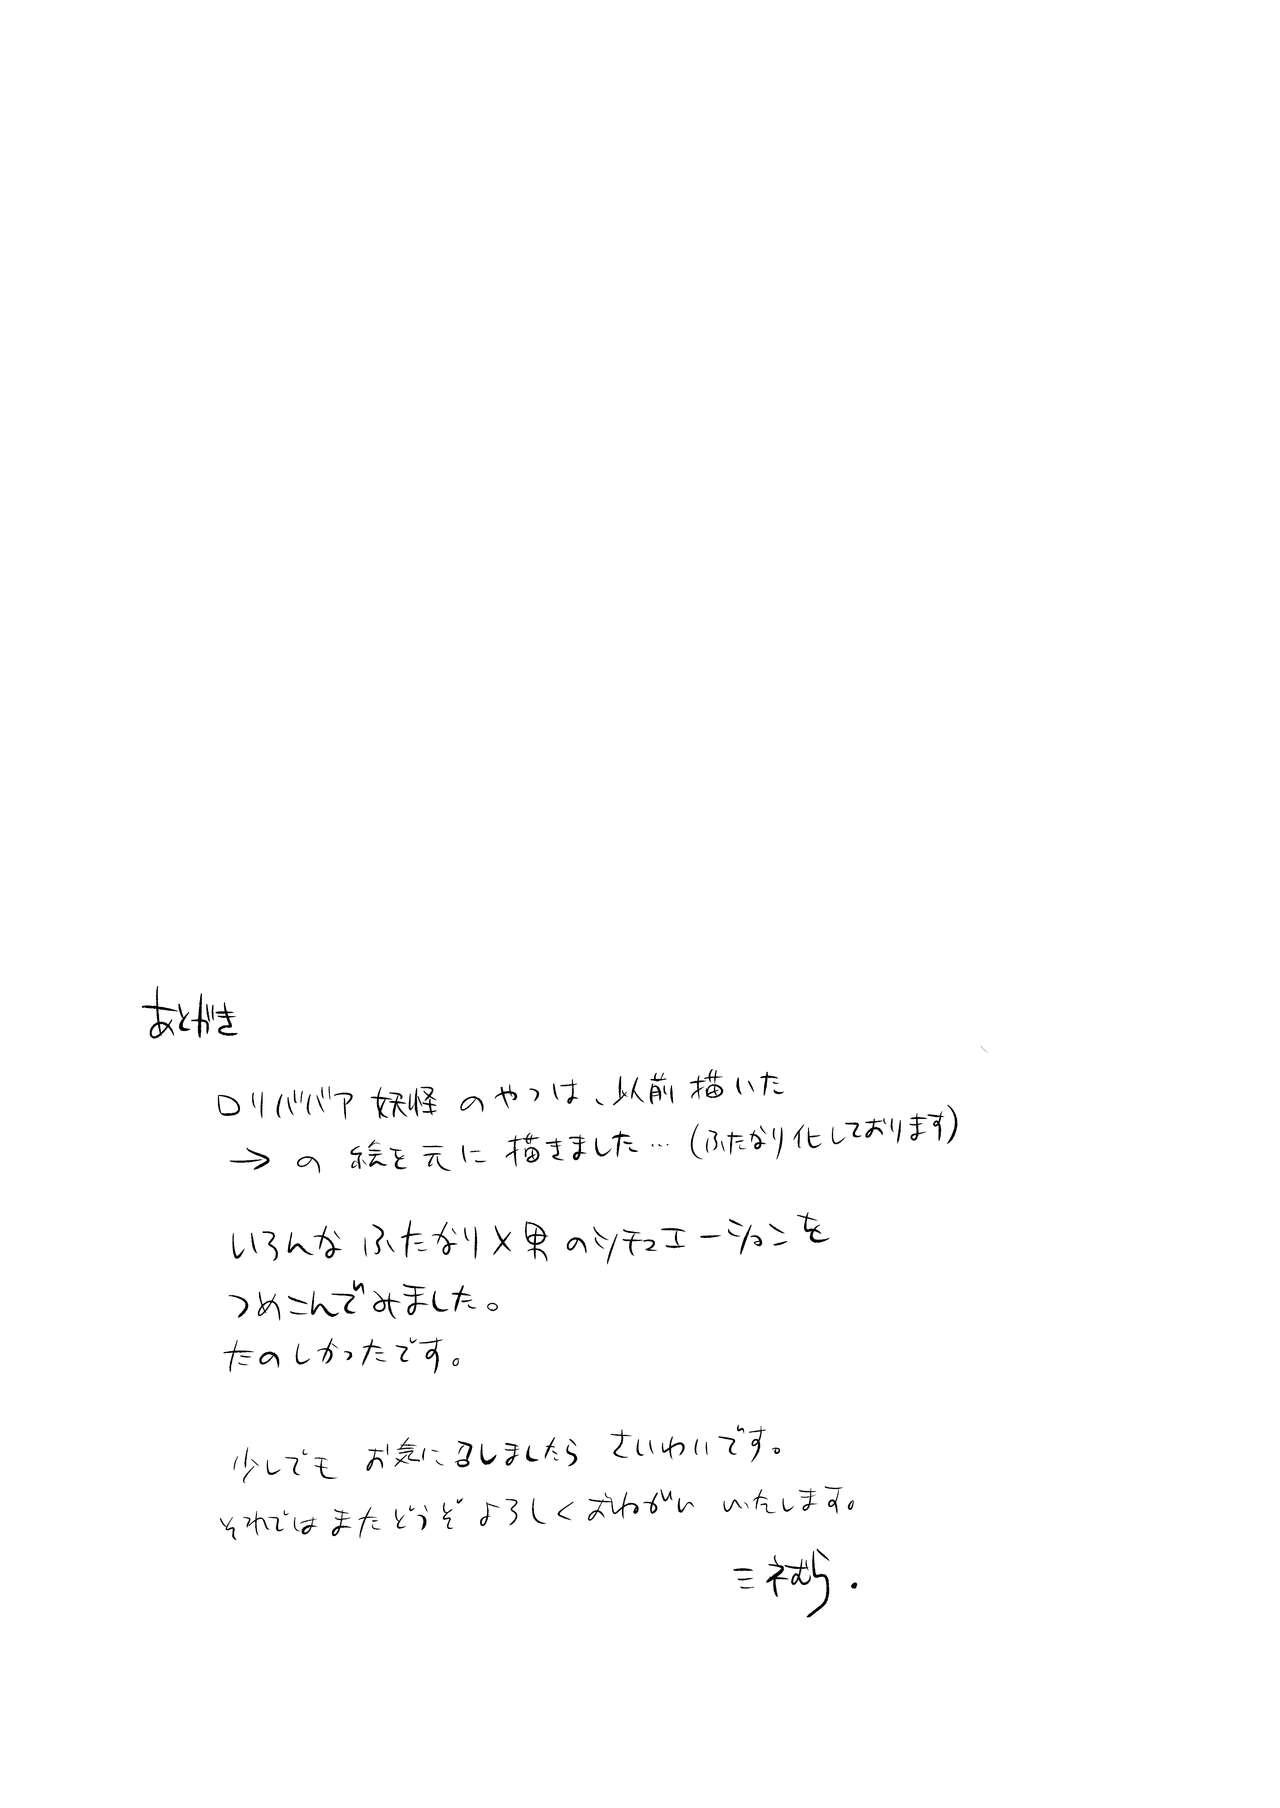 あとがき
ロリババア妖怪のやつは、以前描いた
→の絵を元に描きました…(ふたなり化しております)
いろんなふたなり×男のシチュエーションを
つめこんでみました。
たのしかったです。
少しでもお気に召しましたらさいわいです。
それではまたどうぞよろしくおねがいいたします。
三ネむら.